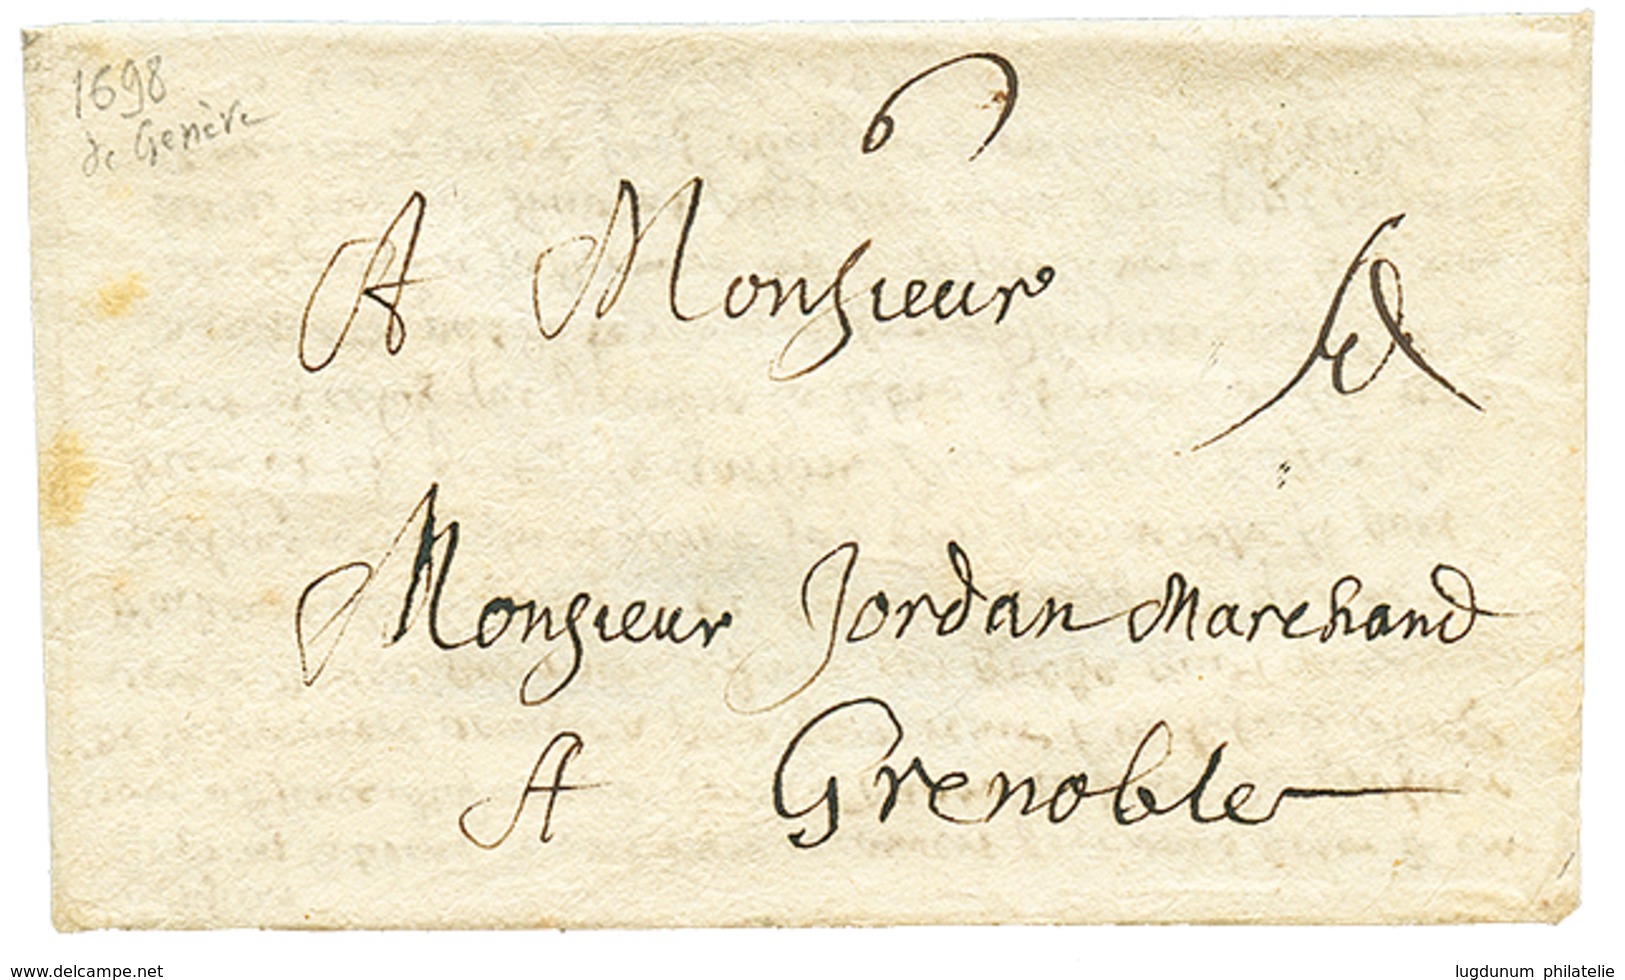 1698
de Genève
A Monsieur
Monsieur Jordan Marchand
A Grenoble
www.delcampe.net
lugdunum philatelie